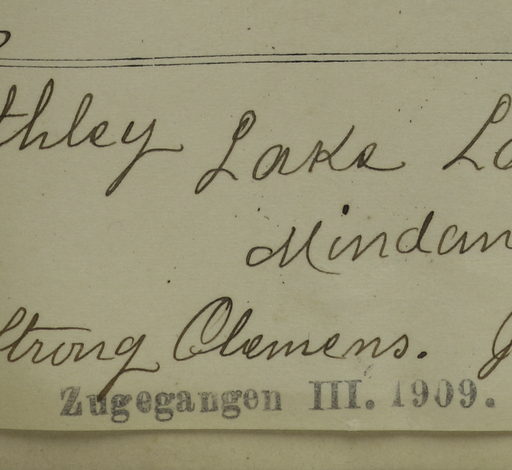 thley Lake La
Mindan
Strong Clemens. J
Zugegangen III. 1909.